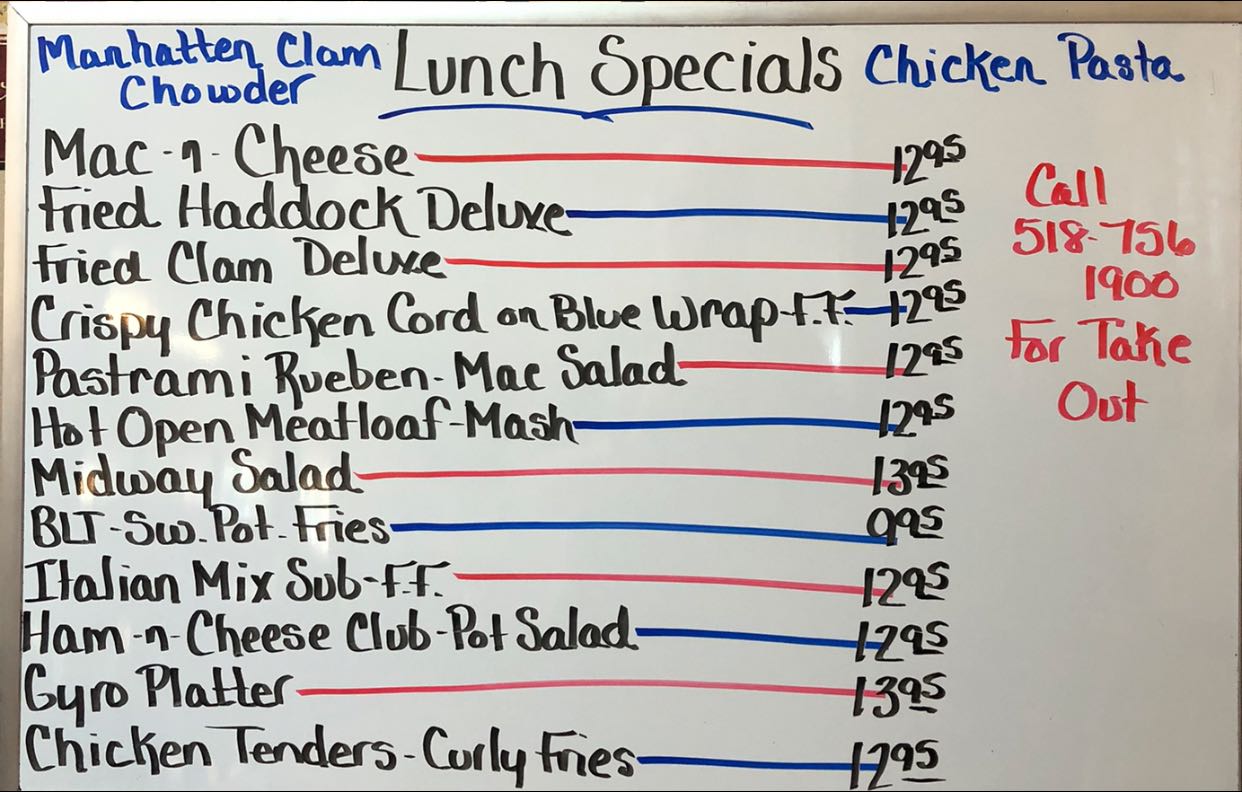 Manhatten Clam
Chowder
Lunch Specials
Chicken Pasta
Mac-n-Cheese 12.95
Fried Haddock Deluxe 12.95
Fried Clam Deluxe 12.95
Crispy Chicken Cord on Blue Wrap-F.F. 12.95
Pastrami Rueben-Mac Salad 12.95
Hot Open Meatloaf-Mash 12.95
Midway Salad 13.95
BLT-Sw. Pot. Fries 9.95
Italian Mix Sub-F.F. 12.95
Ham-n-Cheese Club-Pot Salad 12.95
Gyro Platter 13.95
Chicken Tenders-Curly Fries 12.95
Call
518-756
1900
For Take
Out